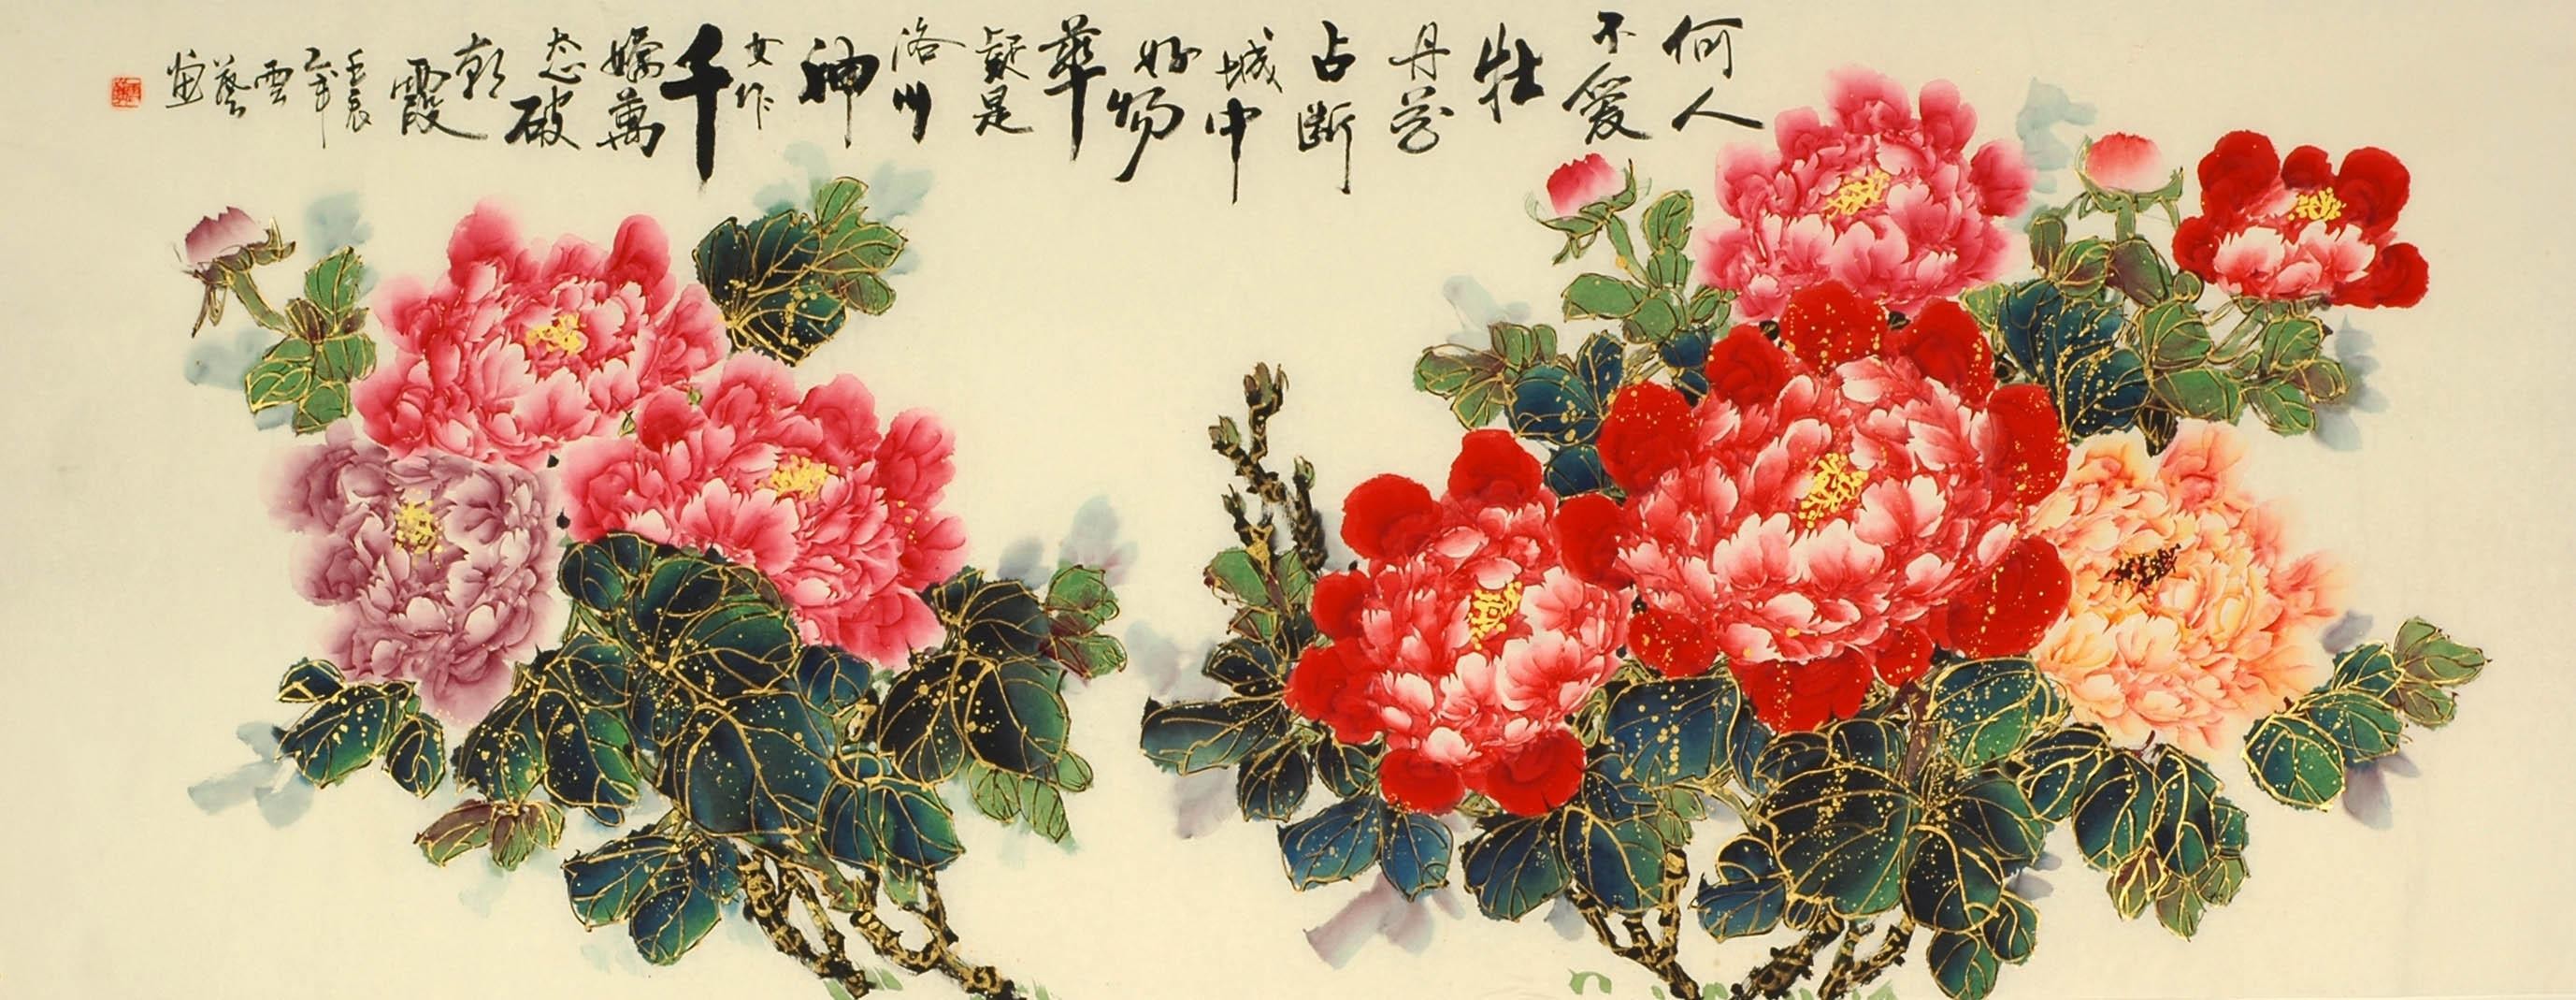 何人
不爱
牡
丹花
占断
城中
好物
華
疑是
洛川
神
女作
千
嬌萬
态破
朝
霞
壬辰
年
雲
藝
画